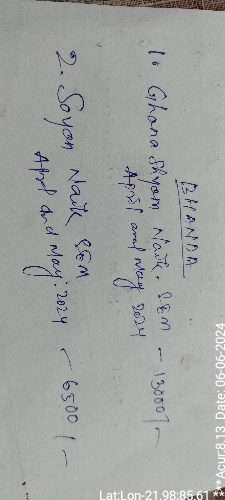 BHANDA
1. Ghana Shyam Naik. SEM - 13000/-
April and May 2024
2. Soyan Naik SEM - 6500/-
April and May: 2024
Lat:Lon-21.98:85.61
***Acur:8.13 Date: 06-06-2024